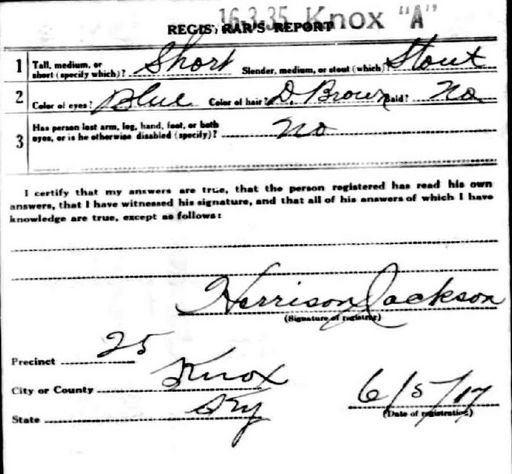 16.3.35 Knox "A"
REGISTRAR'S REPORT
1 Tall, medium, or short (specify which)? Short Slender, medium, or stout (which)? Stout
2 Color of eyes? Blue Color of hair? D. Brown Bald? No
3 Has person lost arm, leg, hand, foot, or both eyes, or is he otherwise disabled (specify)? No
I certify that my answers are true, that the person registered has read his own
answers, that I have witnessed his signature, and that all of his answers of which I have
knowledge are true, except as follows:
Harrison Jackson
(Signature of registrar)
Precinct 25
City or County Knox
State Ky 6/5/17
(Date of registration)